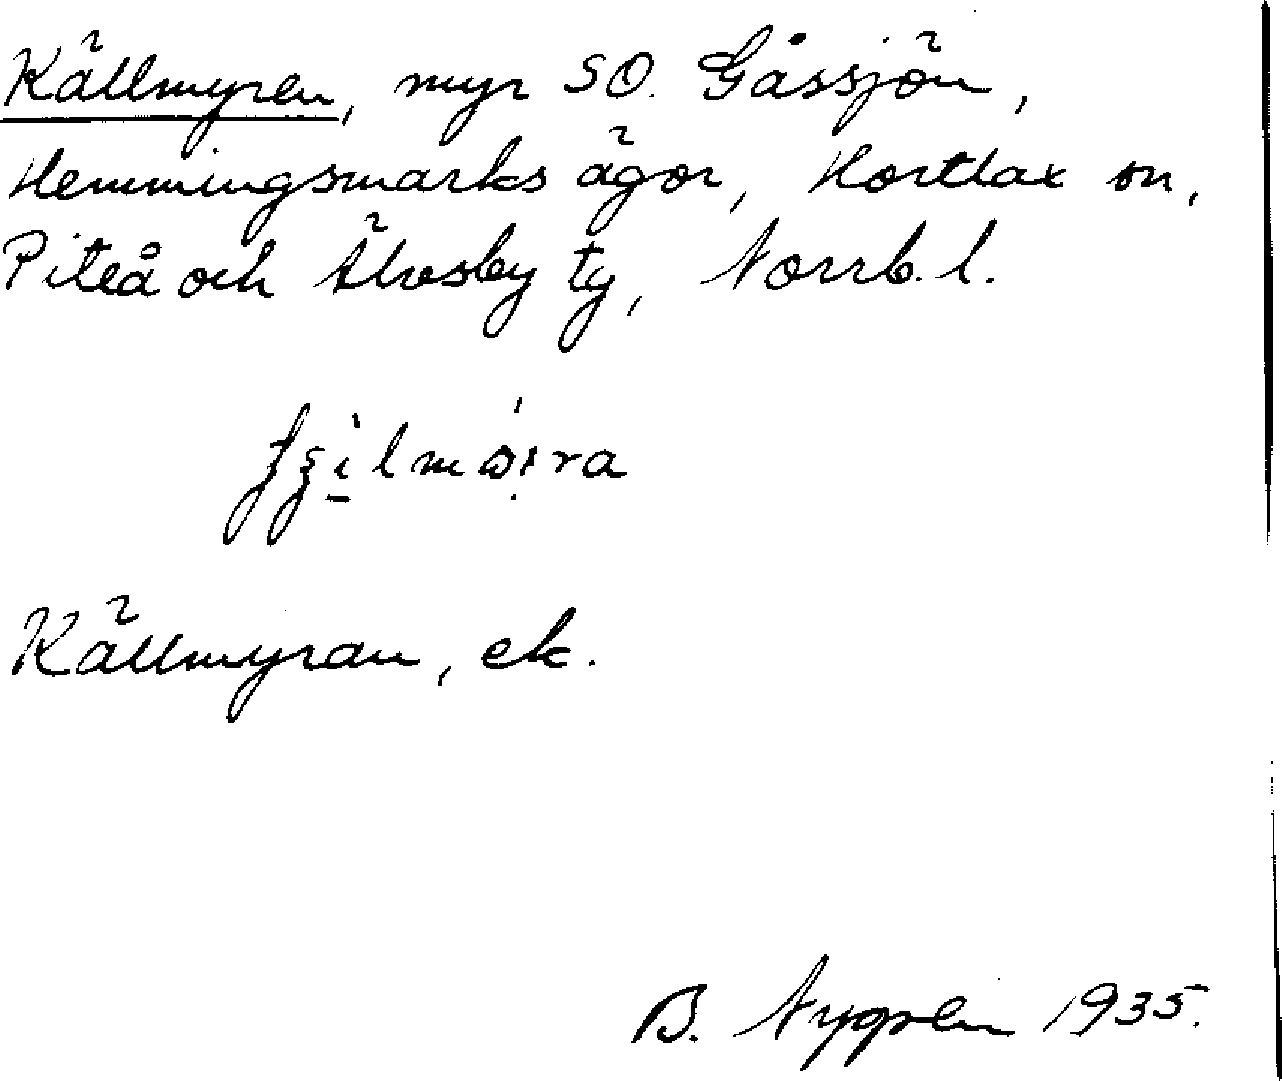 Källmyren, myr SO. Gåssjön,
Hemmingsmarks ägor, Hortlax sn,
Piteå och Älvsby tg, Norrb. l.
Källmyran, ek.
B. Nygren 1935.